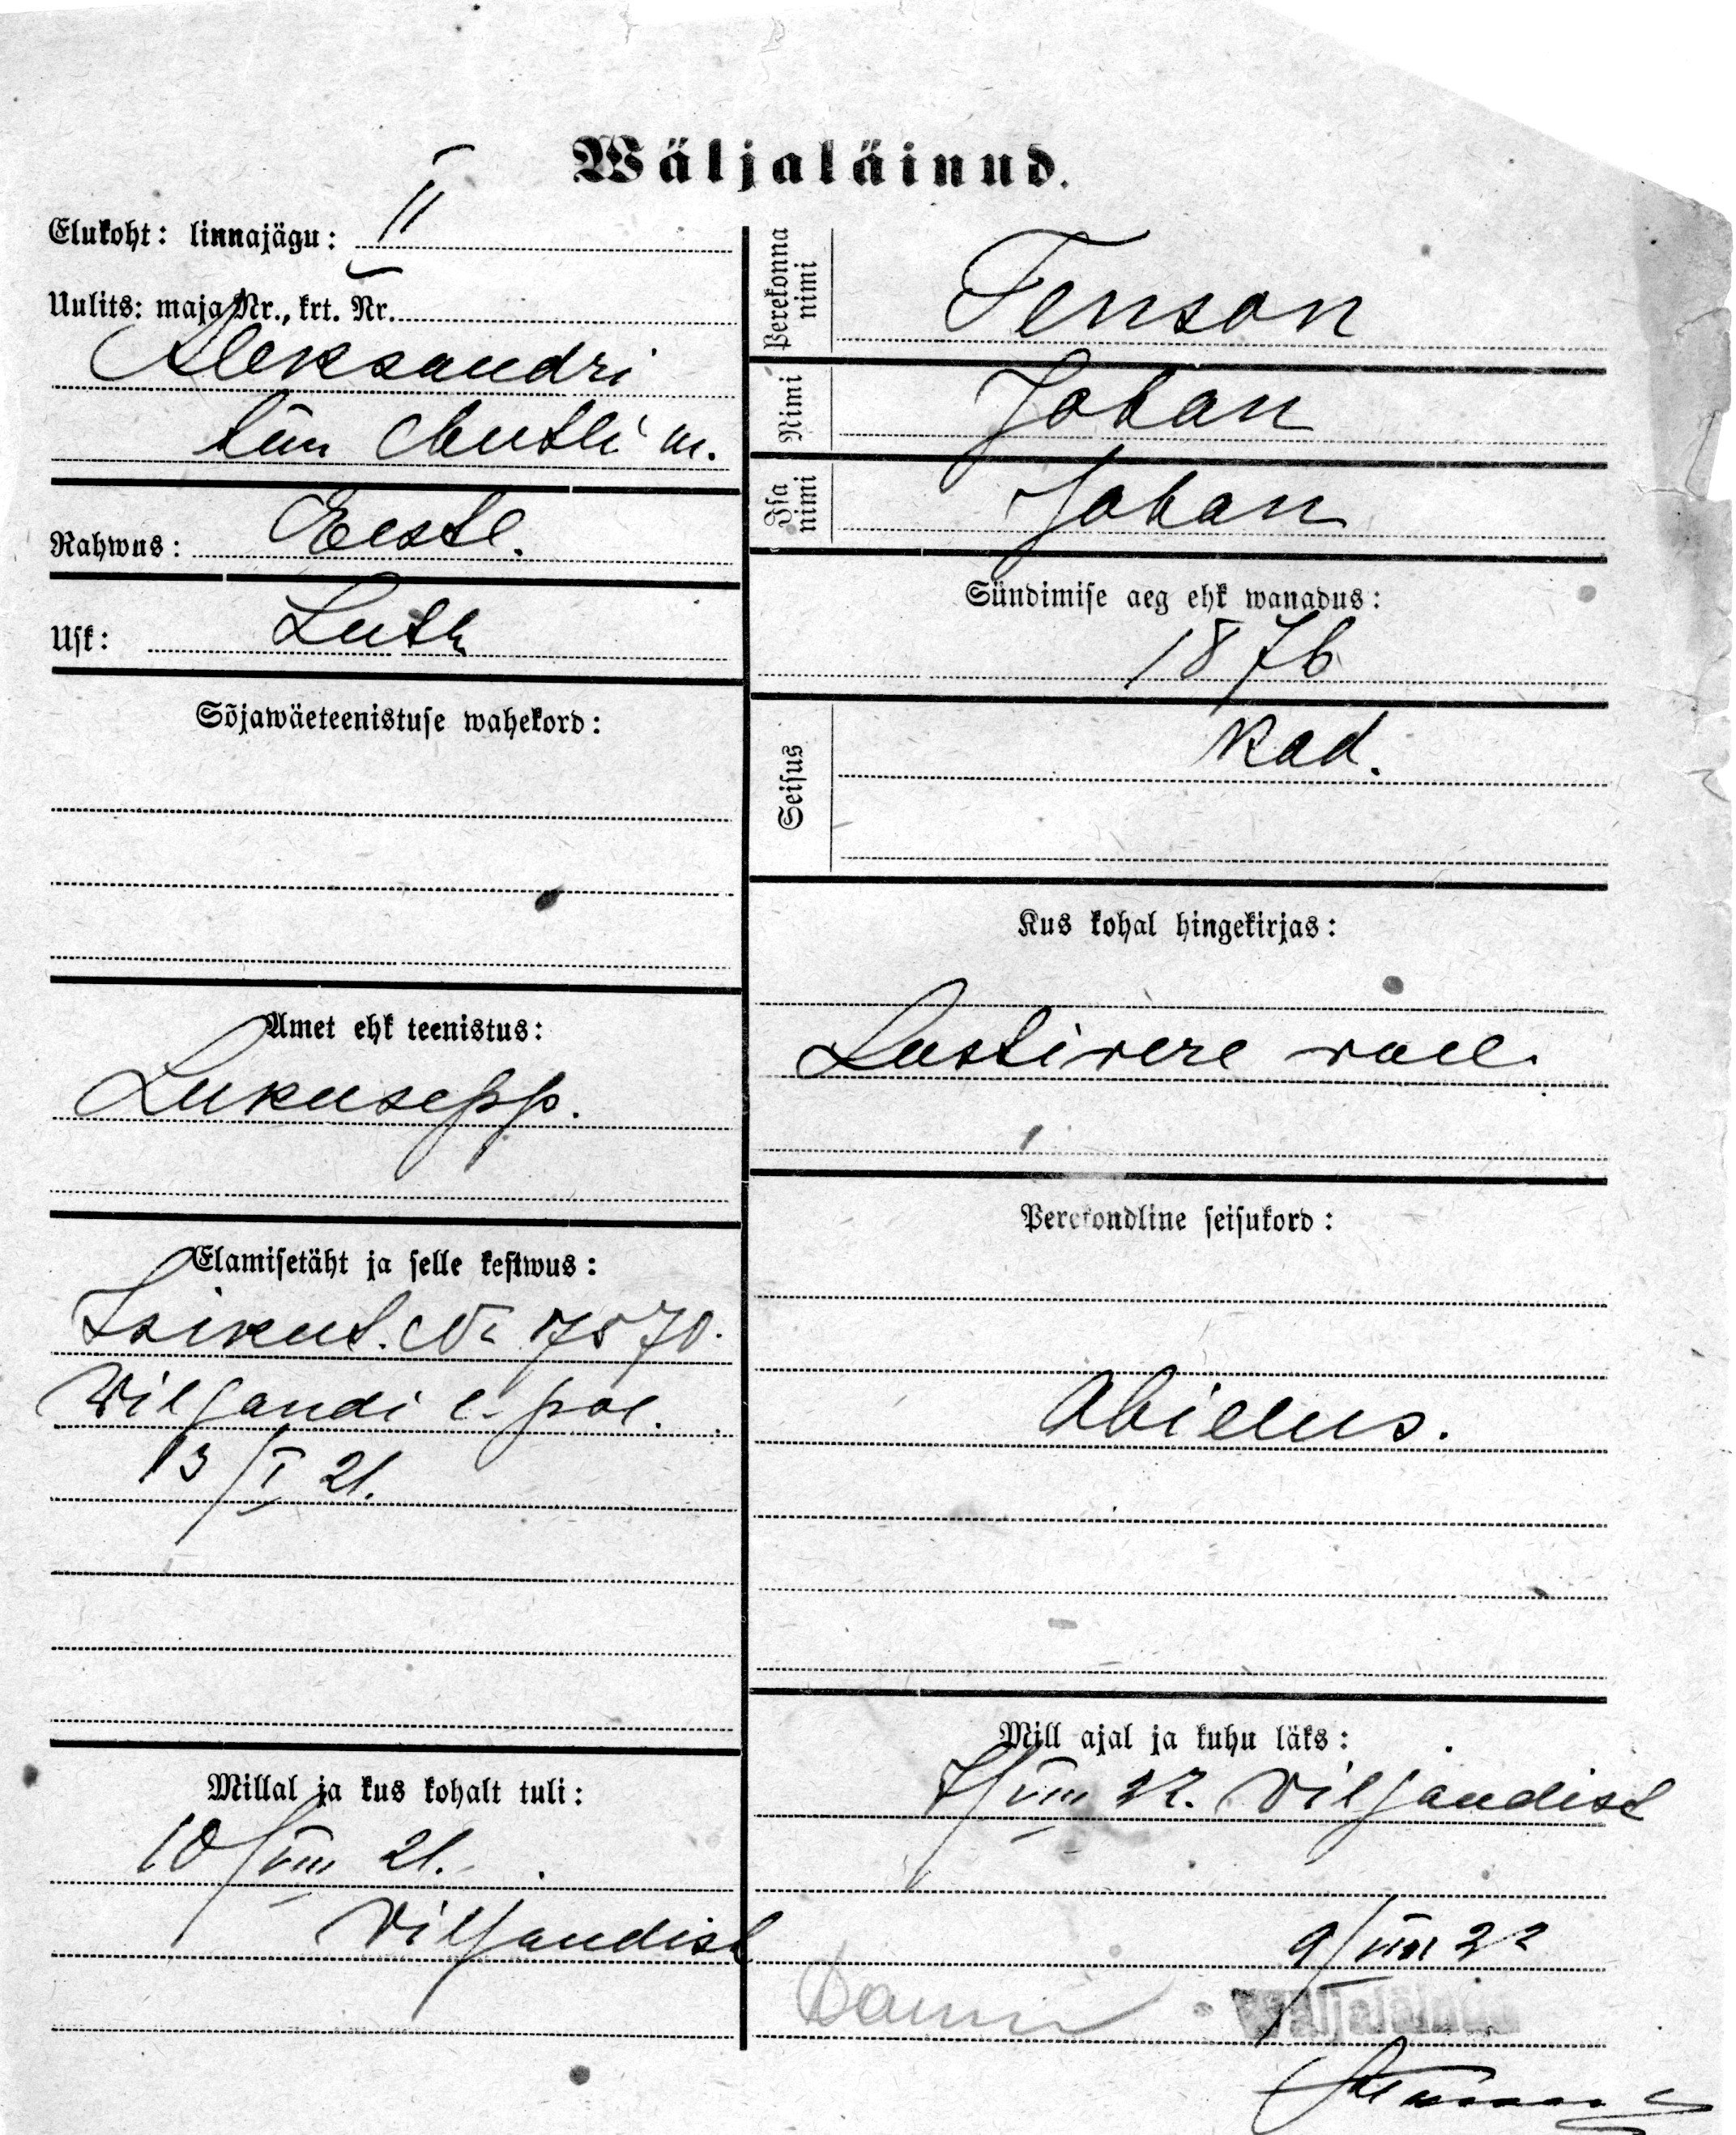 Wäljaläinud.
Elukoht: linnajägu: II
Uulits: maja Nr., krt. Nr.
Aleksandri
tän m.
Rahwus: Eestl.
Usk: Luth
Sõjawäeteenistuse wahekord:
Amet ehk teenistus:
Lukusepp.
Elamisetäht ja selle kestwus:
Isikut. No 17570.
Wiljandi l. pol.
13/I 21.
Millal ja kus kohalt tuli:
10/VIII 21.
Viljandist
Perekonna nimi
Tenson
Nimi
Johan
Isa nimi
Johan
Sündimise aeg ehk wanadus:
1876
Seisus
kod.
Kus kohal hingekirjas:
Lustivere vall.
Perekondline seisukord:
Abielus.
Mill ajal ja kuhu läks:
7/VIII 22. Viljandist
9/VIII 22
Wäljaläinud